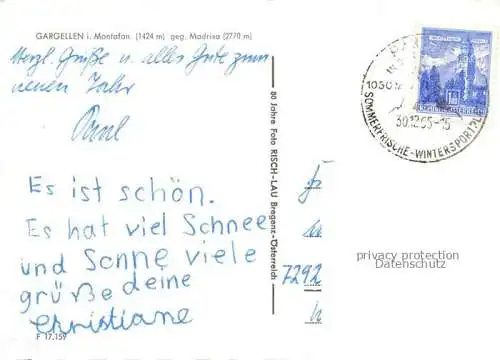 GARGELLEN i. Montafon (1424 m) geg. Madrisa (2770 m)
Herzl. Grüße u. alles Gute zum
neuen Jahr
Es ist schön.
Es hat viel Schnee
und Sonne viele
grüße deine
Christiane
F 17.159
80 Jahre Foto RISCH-LAU Bregenz-Österreich
1050
30.12.65-15
SOMMERFRISCHE-WINTERSPORTPL
7292
privacy protection
Datenschutz